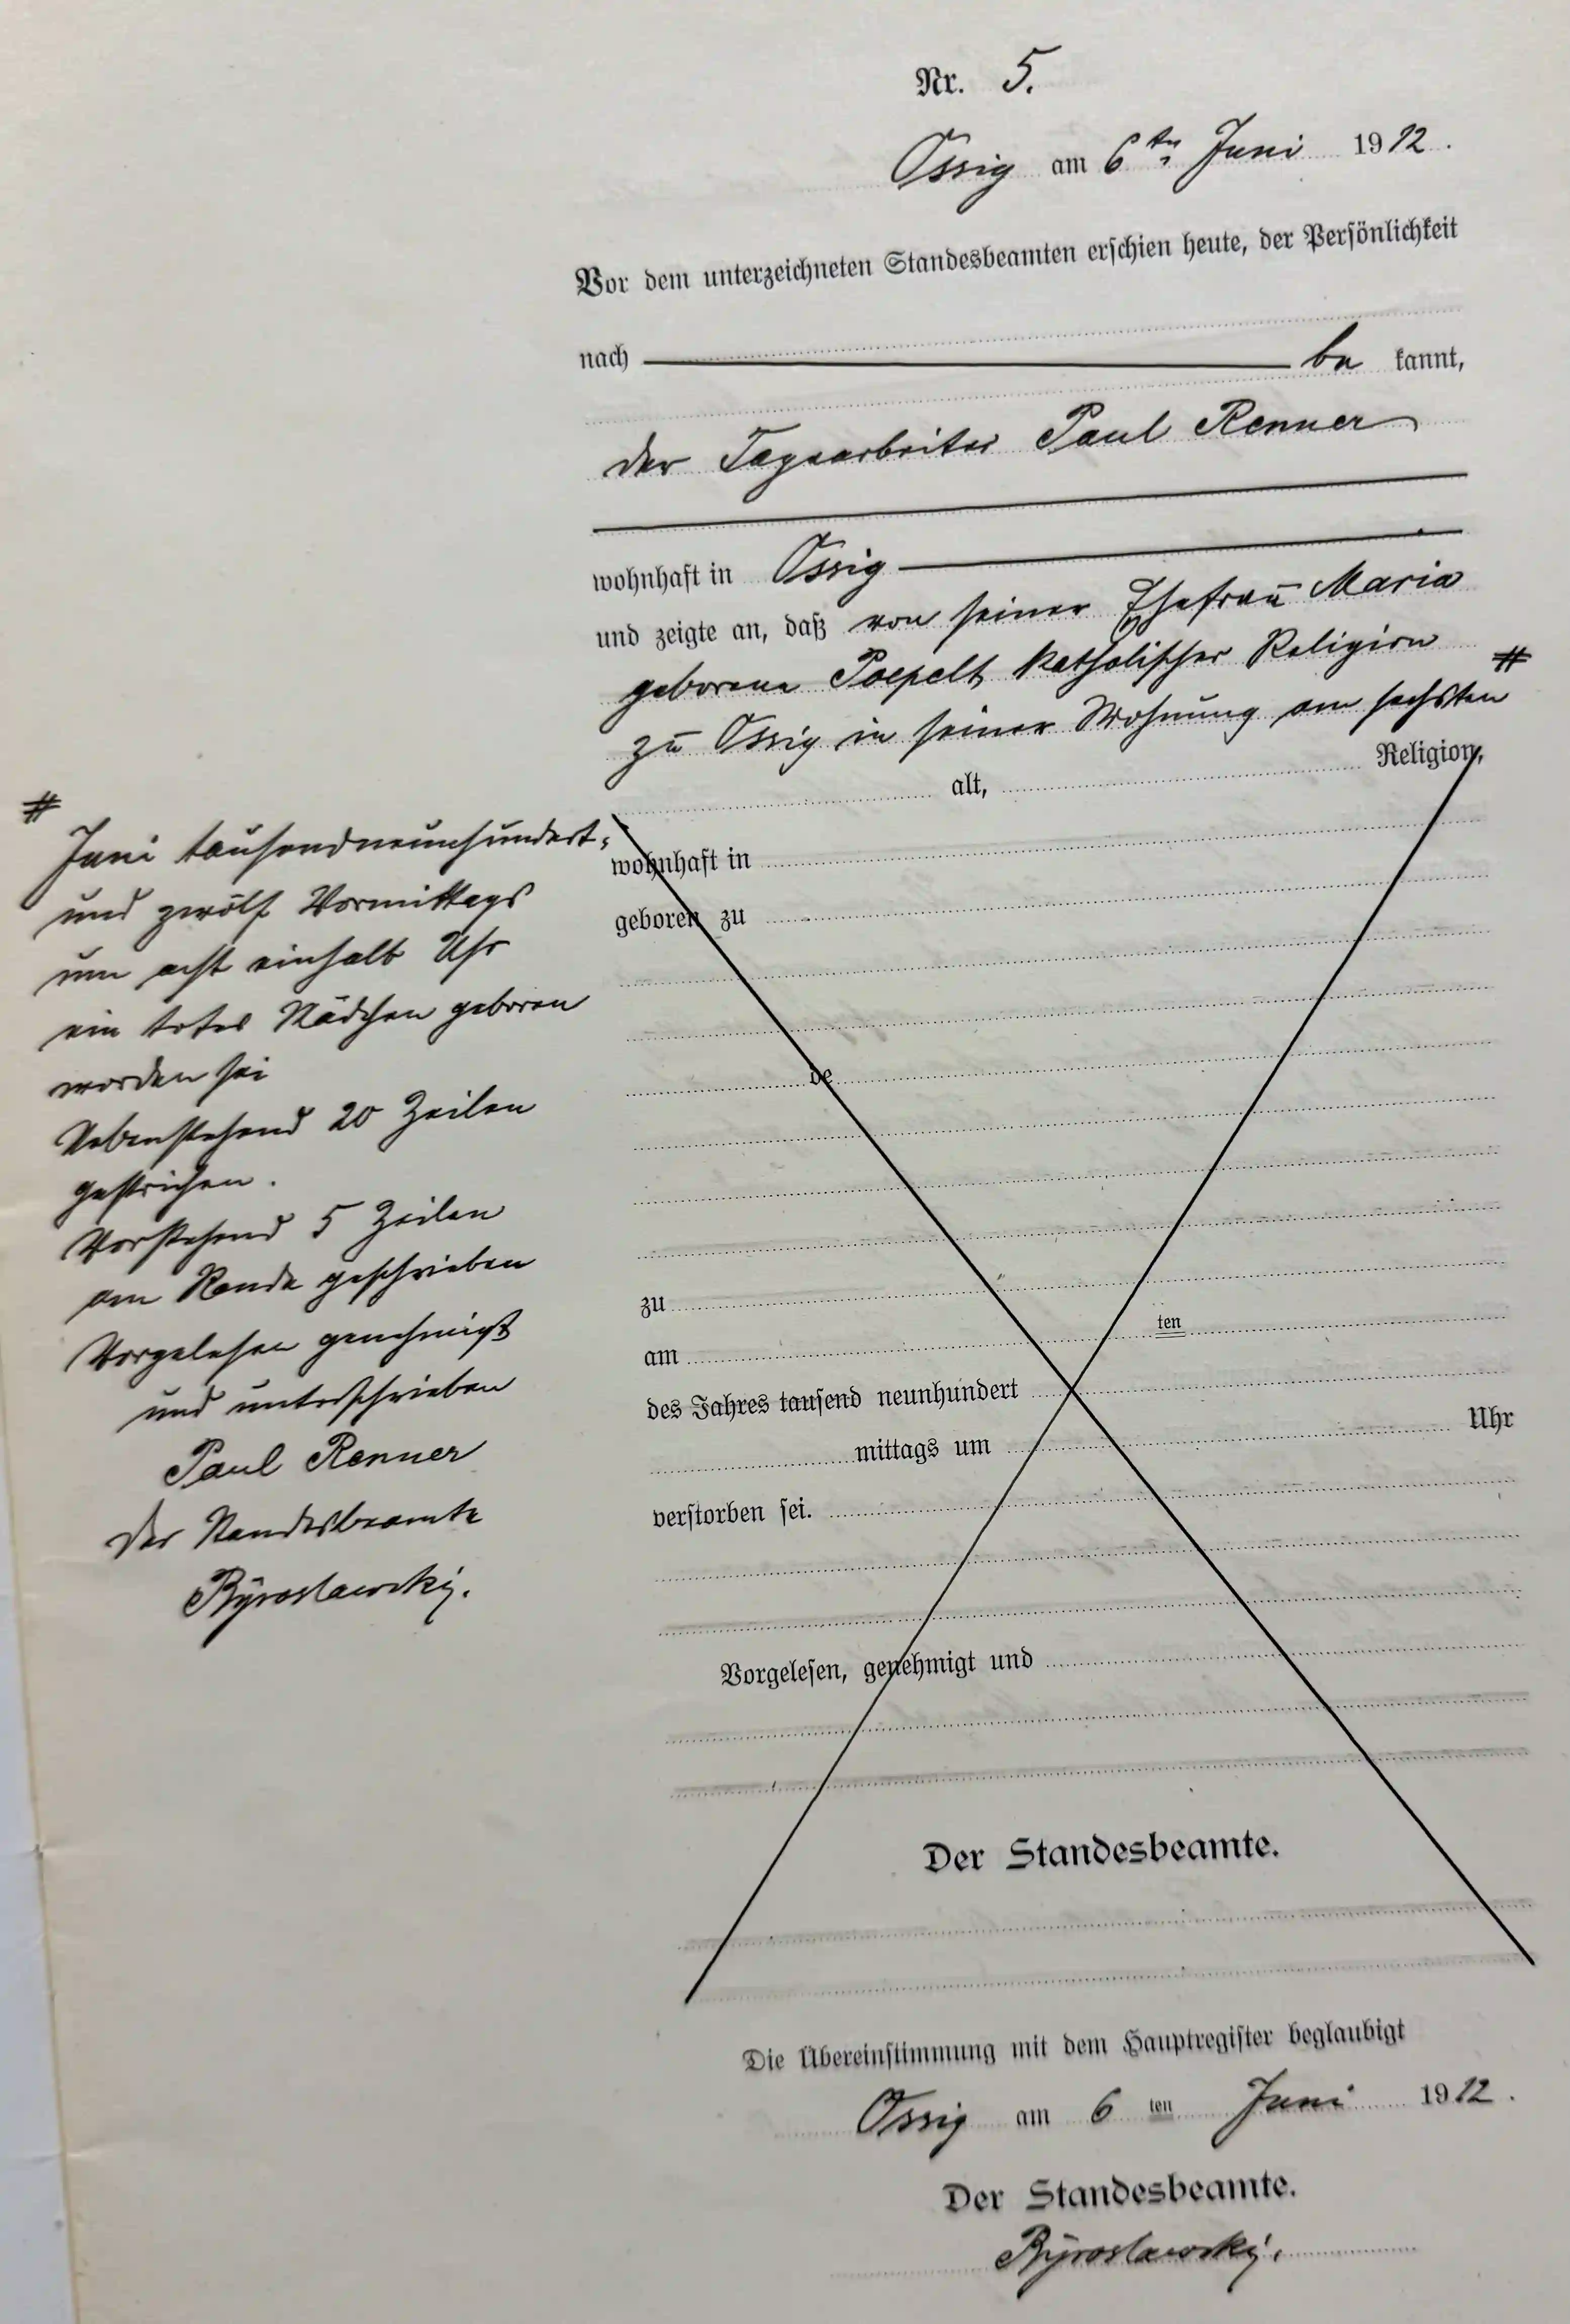 Nr. 5.
Ossig am 6ten Juni 1912.
Vor dem unterzeichneten Standesbeamten erschien heute, der Persönlichkeit
nach be kannt,
der Tagearbeiter Paul Renner
wohnhaft in Ossig
und zeigte an, daß von seiner Ehefrau Maria
geborene Poepelt katholischer Religion
zu Ossig in seiner Wohnung am sechsten #
alt, Religion,
wohnhaft in
geboren zu
de
zu
am ten
des Jahres tausend neunhundert
mittags um Uhr
verstorben sei.
Vorgelesen, genehmigt und
Der Standesbeamte.
Die Übereinstimmung mit dem Hauptregister beglaubigt
Ossig am 6 ten Juni 1912.
Der Standesbeamte.
#
Juni tausendneunhundert-
und zwölf Vormittags
um acht einhalb Uhr
ein totes Mädchen geboren
worden sei
Nebenstehend 20 Zeilen
gestrichen.
Vorstehend 5 Zeilen
am Rande geschrieben
Vorgelesen genehmigt
und unterschrieben
Paul Renner
Der Standesbeamte